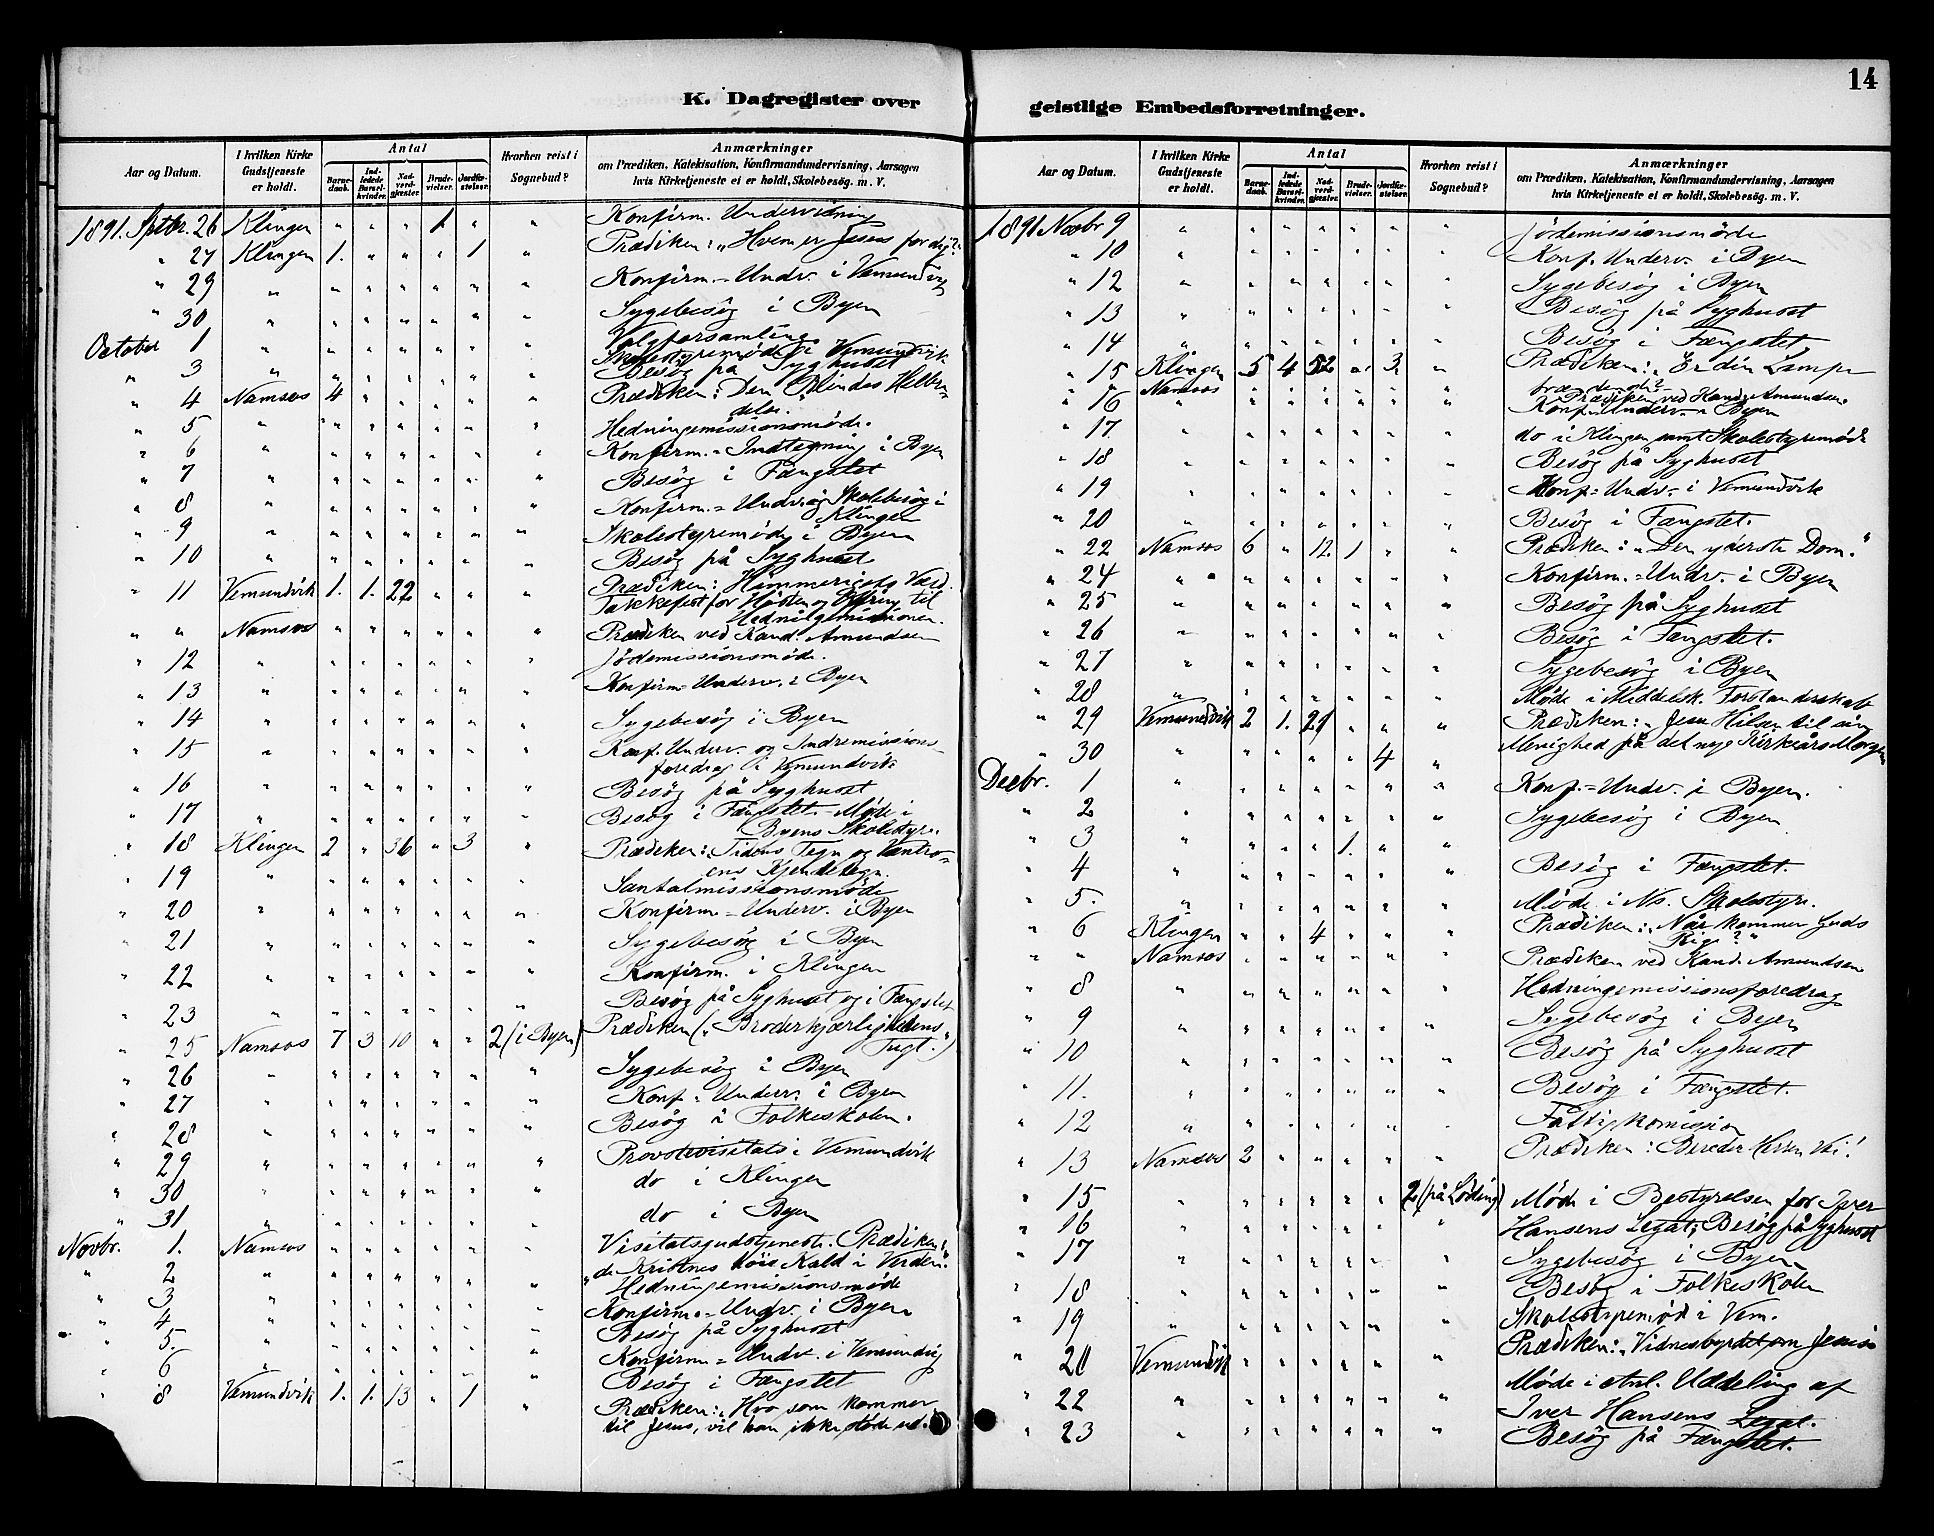 14
K. Dagregister over geistlige Embedsforretninger.
Aar og Datum.
I hvilken Kirke Gudstjeneste er holdt.
Antal
Barnedaab.
Indledede Barselkvinder.
Nadverdgjester.
Brudevielser.
Jordfæstelser.
Hvorhen reist i Sognebud?
Anmærkninger
om Prædiken, Katekisation, Konfirmandundervisning, Aarsagen
hvis Kirketjeneste ei er holdt, Skolebesøg. m. V.
1891. Sptbr. 26 Klingen " " " 1 " " Konfirm. Undervisning
" 27 Klingen 1. " " " 1 " Prædiken: "Hvem er Jesus for dig?"
" 29 " " " " " " " Konfirm.-Undv. i Vemundvig
" 30 " " " " " " " Sygebesøg i Byen
October 1 " " " " " " " Valgforsamling
Skolestyremøde i Vemundvik
" 3 " " " " " " " Besøg på Syghuset
" 4 Namsos 4 " " " " " Prædiken: Den Blindes Helbredelse.
" 5 " " " " " " " Hedningemissionsmøde.
" 6 " " " " " " " Konfirm.-Indtegning i Byen
" 7 " " " " " " " Besøg i Fængslet
" 8 " " " " " " " Konfirm.-Undv. og Skolebesøg i Klingen
" 9 " " " " " " " Skolestyremøde i Byen
" 10 " " " " " " " Besøg på Syghuset
" 11 Vemundvik 1. 1. 22 " " " Prædiken: Himmeriges Værd.
Takkefest for Høsten og Offring til Hedningemissionen.
" " Namsos " " " " " " Prædiken ved Kand. Amundsen
" 12 " " " " " " " Jødemissionsmøde.
" 13 " " " " " " " Konfirm-Underv. i Byen
" 14 " " " " " " " Sygebesøg i Byen
" 15 " " " " " " " Konf. Underv. og Indremissionsforedrag i Vemundvik
" 16 " " " " " " " Besøg på Syghuset
" 17 " " " " " " " Besøg i Fængslet. Møde i Byens Skolestyre.
" 18 Klingen 2 " 36 " 3 " Prædiken: "Tidens Tegn og Vantroens Kjendetegn.
" 19 " " " " " " " Santalmissionsmøde
" 20 " " " " " " " Konfirm-Underv. i Byen
" 21 " " " " " " " Sygebesøg i Byen
" 22 " " " " " " " Konfirm. i Klingen
" 23 " " " " " " " Besøg på Syghuset og i Fængslet
" 25 Namsos 7 3 10 " " 2 (i Byen) Prædiken ("Broderkjærlighedens Tugt.")
" 26 " " " " " " " Sygebesøg i Byen
" 27 " " " " " " " Konf.-Underv. i Byen
" 28 " " " " " " " Besøg i Folkeskolen.
" 29 " " " " " " " Provstevisitats i Vemundvik
" 30 " " " " " " " do i Klingen
" 31 " " " " " " " do i Byen
Novbr. 1. Namsos " " " " " " Visitatsgudstjeneste. Prædiken:
" 2 " " " " " " " "de Kristnes høie Kald i Verden."
Hedningemissionsmøde
" 3 " " " " " " " Konfirm.-Undv. i Byen
" 4 " " " " " " " Besøg på Syghuset
" 5. " " " " " " " Konfirm-Undv. i Vemundvig
" 6 " " " " " " " Besøg i Fængslet
" 8 Vemundvik 1. 1. 13 " 1 " Prædiken: "Hvo som kommer
til Jesus, vil han ikke støde ud."
Aar og Datum.
I hvilken Kirke Gudstjeneste er holdt.
Antal
Barnedaab.
Indledede Barselkvinder.
Nadverdgjester.
Brudevielser.
Jordfæstelser.
Hvorhen reist i Sognebud?
Anmærkninger
om Prædiken, Katekisation, Konfirmandundervisning, Aarsagen
hvis Kirketjeneste ei er holdt, Skolebesøg. m. V.
1891 Novbr 9 " " " " " " " Jødemissionsmøde
" 10 " " " " " " " Konf. Underv. i Byen
" 12 " " " " " " " Sygebesøg i Byen
" 13 " " " " " " " Besøg på Syghuset
" 14 " " " " " " " Besøg i Fængslet
" 15 Klingen 5 4 52 " 3 " Prædiken: "Er din Lampe brændende?
Namsos Prædiken ved Kand. Amundsen
" 16 " " " " " " " Konf-Underv. i Byen
" 17 " " " " " " " do i Klingen samt Skolestyremøde
" 18 " " " " " " " Besøg på Syghuset
" 19 " " " " " " " Konf-Undv. i Vemundvik
" 20 " " " " " " " Besøg i Fængslet.
" 22 Namsos 6 " 12 1 " " Prædiken: "Den yderste Dom."
" 24 " " " " " " " Konfirm.-Undv. i Byen
" 25 " " " " " " " Besøg på Syghuset
" 26 " " " " " " " Besøg i Fængslet.
" 27 " " " " " " " Sygebesøg i Byen
" 28 " " " " " " " Møde i Middelsk. Forstanderskab
" 29 Vemundvik 2 1. 21 " " " Prædiken: "Jesu Hilsen til sin
" 30 " " " " " 4 " Menighed på det nye Kirkeårs Morgen
Decbr. 1 " " " " " " " Konf.-Undv. i Byen.
" 2 " " " " " " " Sygebesøg i Byen
" 3 " " " " 1. " "
" 4 " " " " " " " Besøg i Fængslet.
" 5. " " " " " " " Møde i Ns. Skolestyre.
" 6 Klingen " " 4 " " " Prædiken: "Når kommer Guds Rige?"
" " Namsos " " " " " " Prædiken ved Kand. Amundsen
" 8 " " " " " " " Hedningemissionsforedrag
" 9 " " " " " " " Sygebesøg i Byen
" 10 " " " " " " " Besøg på Syghuset
" 11. " " " " " " " Besøg i Fængslet.
" 12 " " " " " " " Fattigkomission
" 13 Namsos 2 " " " " " Prædiken: Bereder Herren Vei!
" 15 " " " " " " 2 (på Løding) Møde i Bestyrelsen for Iver
" 16 " " " " " " " Hansens Legat; Besøg på Syghuset
" 17 " " " " " " " Sygebesøg i Byen
" 18 " " " " " " " Besøg i Folkeskolen
" 19 " " " " " " " Skolestyremøde i Vem.
" 20 Vemundvik " " " " " " Prædiken: "Vidnesbyrdet om Jesus
" 22 " " " " " " " Møde i anl. Uddeling af
Iver Hansens Legat.
" 23 " " " " " " " Besøg på Fængslet.